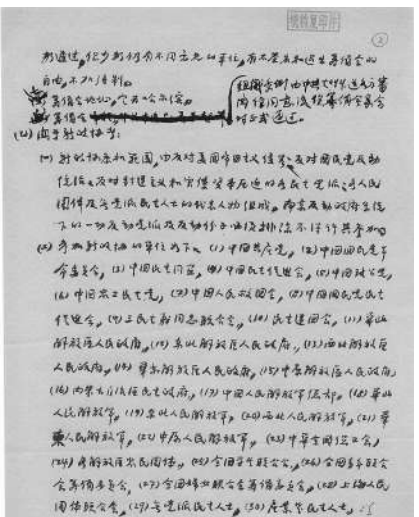 ②
所通过,但少数仍有不同意见的单位,有不签名和退出筹备会的
自由,不加强制。
组织条例由中共起草
经筹备会
时正式通过。
(七) 关于新政协者:
(1) 新政协参加范围,由反对美国帝国主义侵略、反对国民党反动
统治、反对封建主义和官僚资本压迫的各民主党派、各人民
团体及无党派民主人士的代表人物组成,南京反动政府系统
下的一切反动党派及反动分子必须排除,不得许其参加。
(2) 参加新政协的单位如下:(1)中国共产党,(2)中国国民党革
命委员会,(3)中国民主同盟,(4)中国民主促进会,(5)中国致公党,
(6)中国农工民主党,(7)中国人民救国会,(8)中国国民党民主
促进会,(9)三民主义同志联合会,(10)民主建国会,(11)华北
解放区人民政府,(12)东北解放区人民政府,(13)西北解放区
人民政府,(14)华东解放区人民政府,(15)中原解放区人民政府,
(16)内蒙古自治区民主政府,(17)中国人民解放军总部,(18)华北
人民解放军,(19)东北人民解放军,(20)西北人民解放军,(21)华
东人民解放军,(22)中原人民解放军,(23)中华全国总工会,
(24)各解放区农民团体,(25)全国学生联合会,(26)全国青年联合
会筹备委员会,(27)全国妇女联合会筹备委员会,(28)上海人民
团体联合会,(29)无党派民主人士,(30)产业界民主人士,